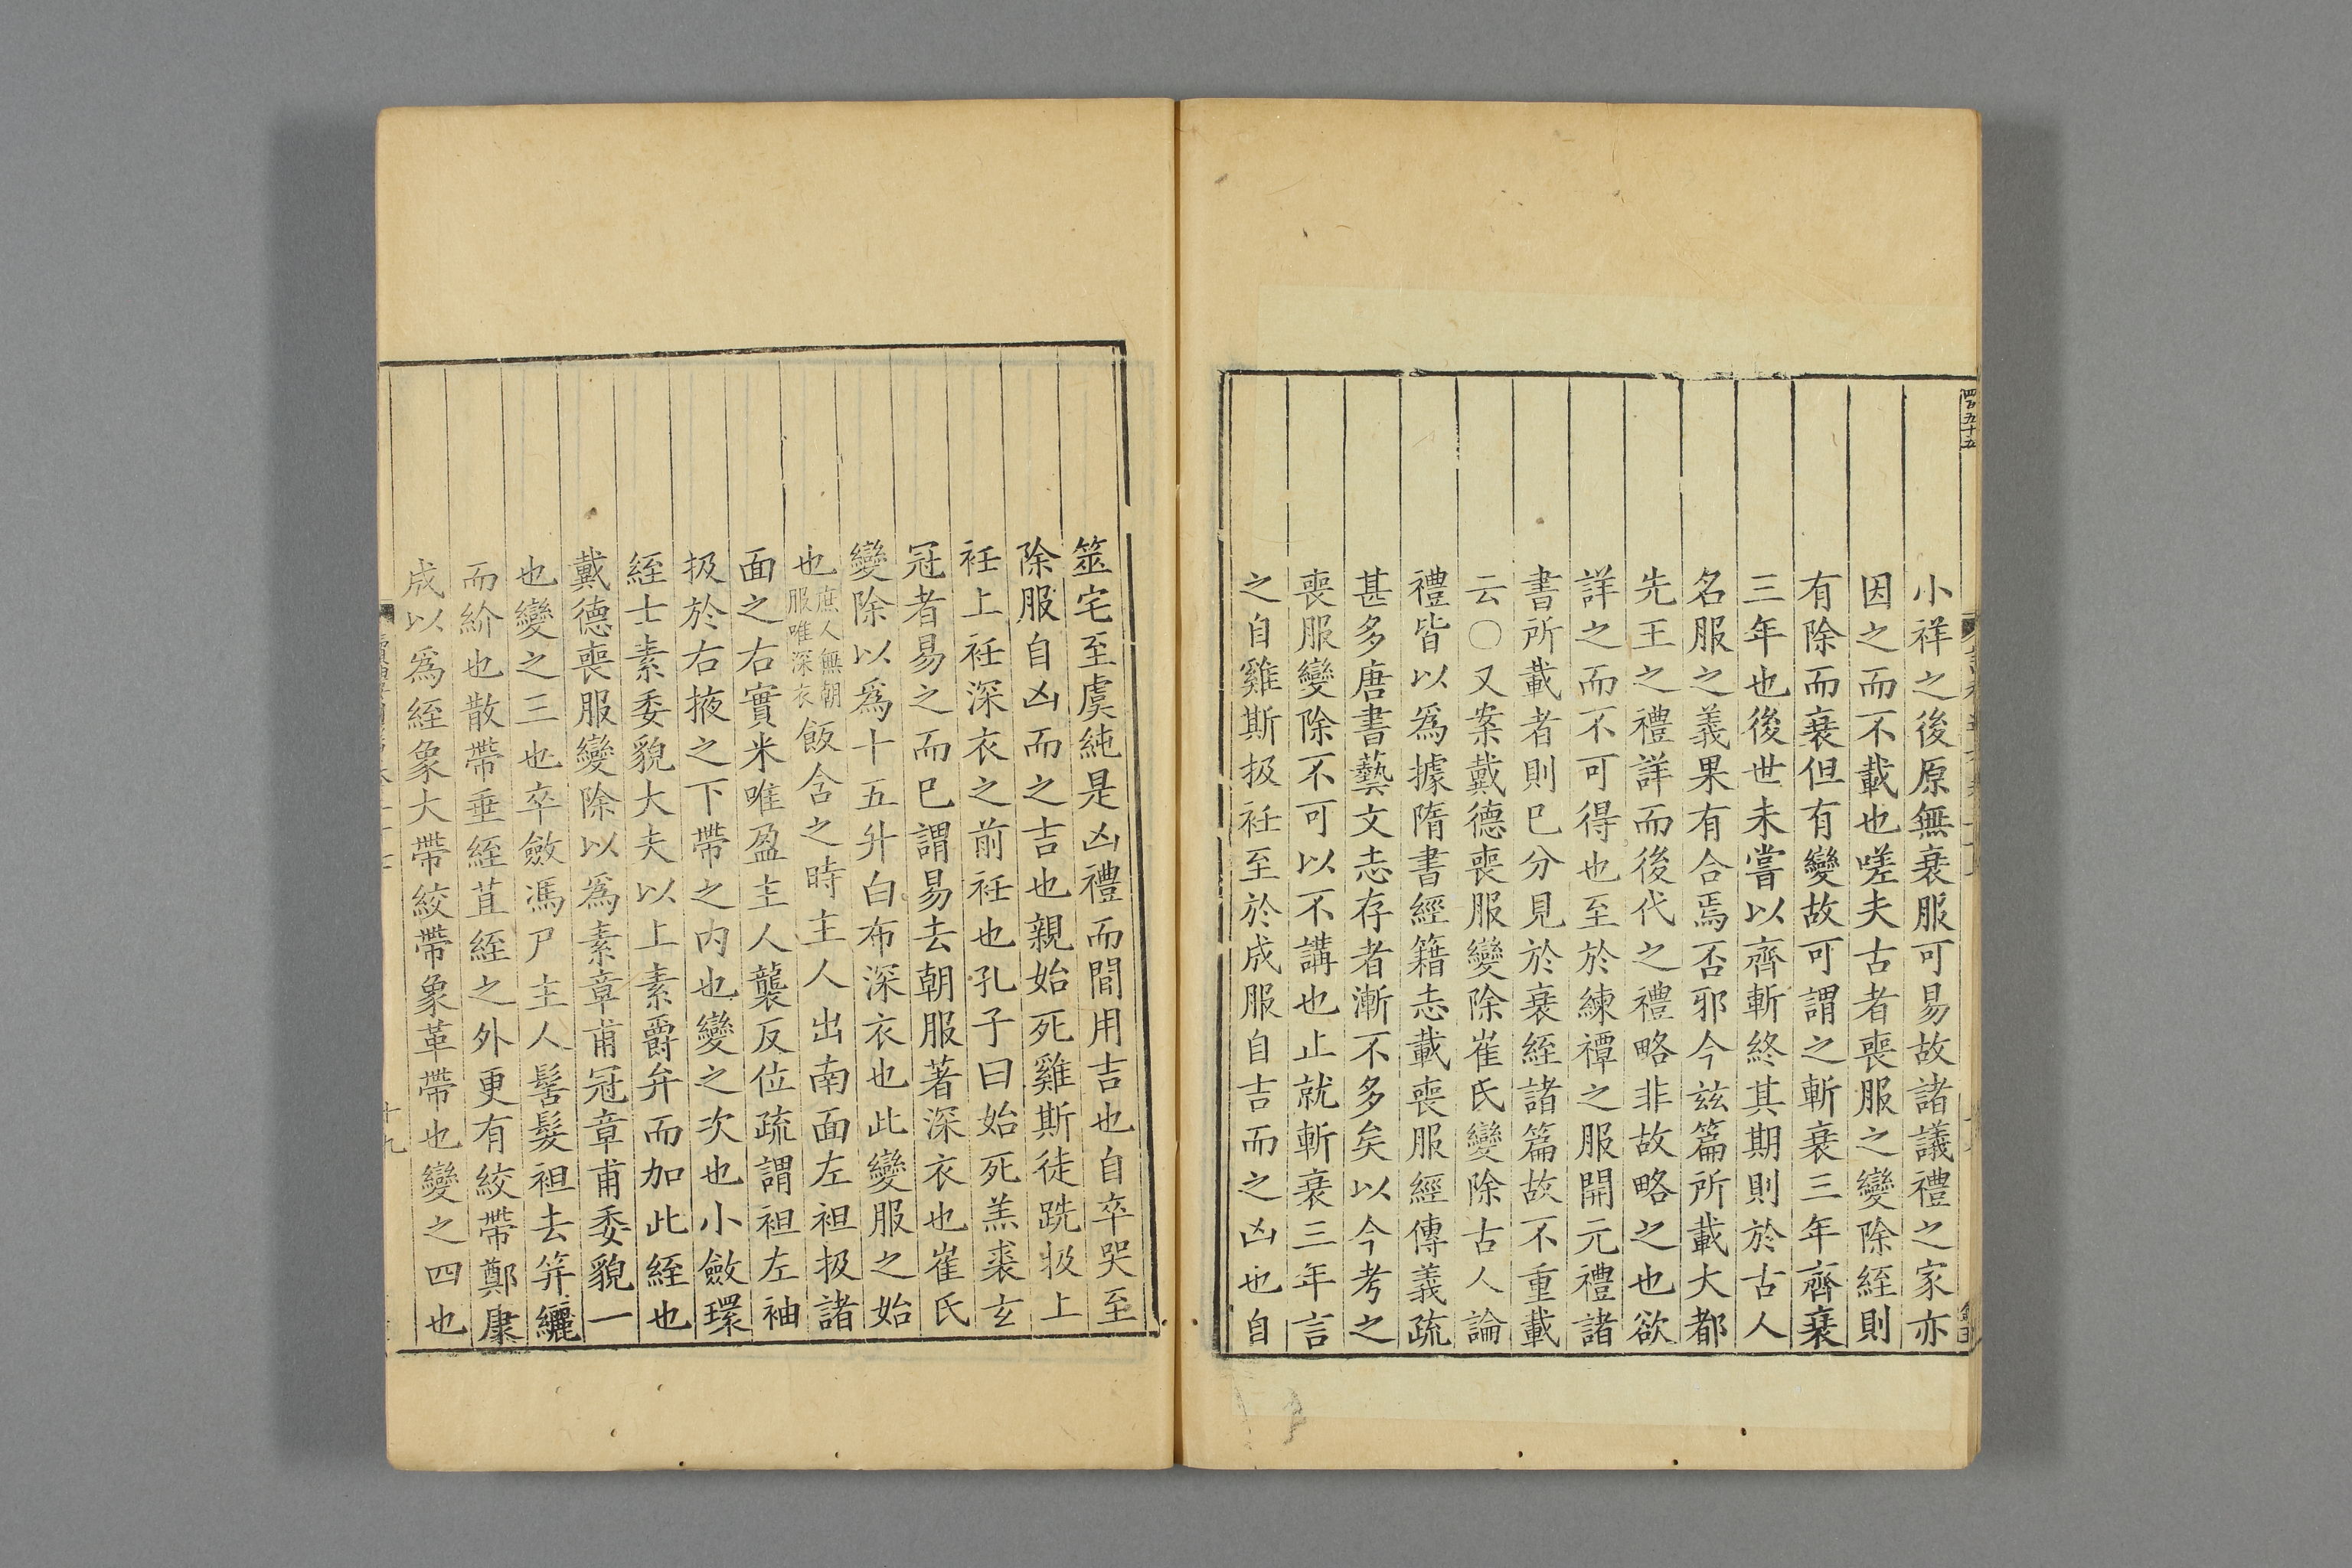 四百五十五
小祥之後原無衰服可易故諸議禮之家亦
因之而不載也嗟夫古者喪服之變除絰則
有除而衰但有變故可謂之斬衰三年齊衰
三年也後世未嘗以齊斬終其期則於古人
名服之義果有合焉否邪今茲篇所載大都
先王之禮詳而後代之禮略非故略之也欲
詳之而不可得也至於練禫之服開元禮諸
書所載者則已分見於衰絰諸篇故不重載
云○又案戴德喪服變除崔氏變除古人論
禮皆以為據隋書經籍志載喪服經傳義疏
甚多唐書藝文志存者漸不多矣以今考之
喪服變除不可以不講也止就斬衰三年言
之自雞斯扱衽至於成服自吉而之凶也自
筮宅至虞純是凶禮而間用吉也自卒哭至
除服自凶而之吉也親始死雞斯徒跣扱上
衽上衽深衣之前衽也孔子曰始死羔裘玄
冠者易之而已謂易去朝服著深衣也崔氏
變除以爲十五升白布深衣也此變服之始
也庶人無朝服唯深衣飯含之時主人出南面左袒扱諸
面之右實米唯盈主人襲反位疏謂袒左袖
扱於右掖之下帶之内也變之次也小斂環
絰士素委貌大夫以上素爵弁而加此絰也
戴德喪服變除以爲素章甫冠章甫委貌一
也變之三也卒斂馮尸主人髻髮袒去筓纚
而紒也散帶垂絰苴絰之外更有絞帶鄭康
成以爲絰象大帶絞帶象革帶也變之四也
十九